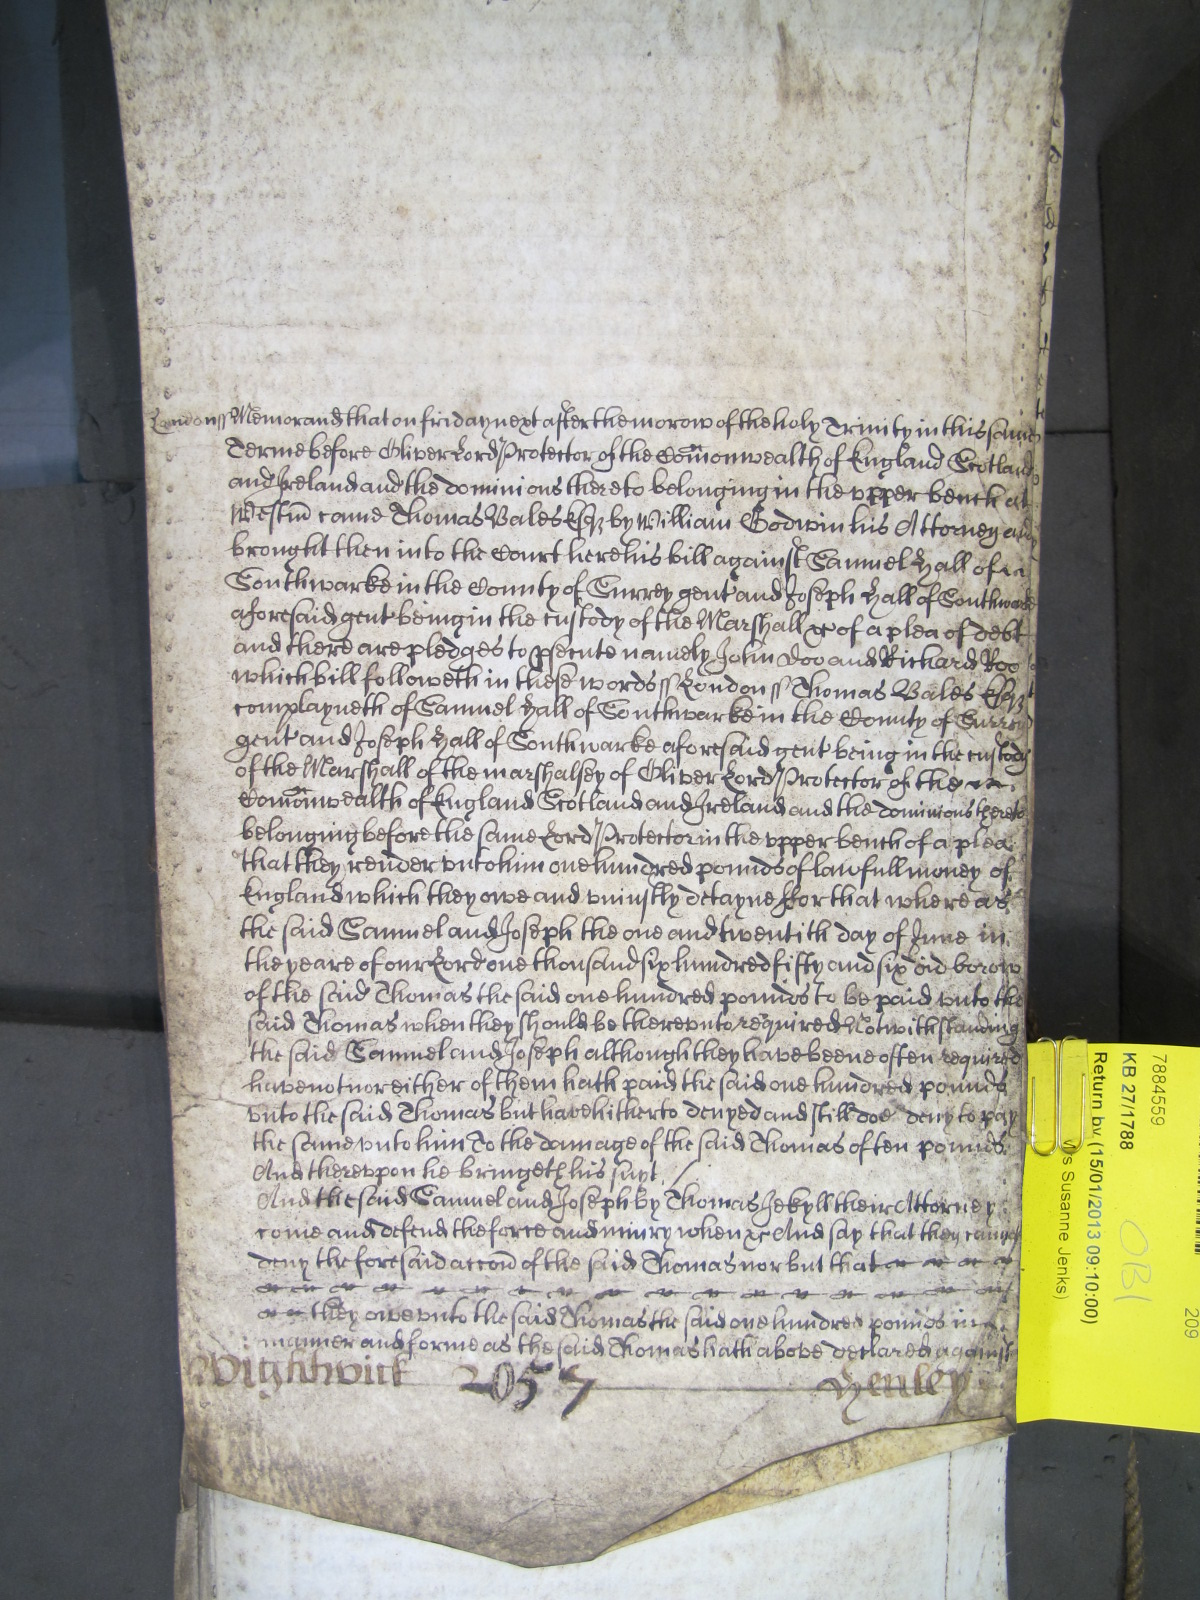 Londonss Memorand that on friday next after the morow of the holy Trinity in this same
Terme before Oliver Lord Protector of the Comonwealth of England Scotland
and Ireland and the dominions thereto belonging in the vpper bench at
Westm came Thomas Bales Esqr by William Godwin his Attorney and
brought then into the Court here his bill against Samuel Hall of
Southwarke in the County of Surrey gent and Joseph Hall of Southwarke
aforesaid gent being in the custody of the Marshall &c of a plea of debt
and there are pledges to psecute namely John Doo and Richard Roo
which bill followeth in these words ss London ss Thomas Bales Esqr
complayneth of Samuel Hall of Southwarke in the County of Surrey
gent and Joseph Hall of Southwarke aforesaid gent being in the custody
of the Marshall of the marshalsey of Oliver Lord Protector of the
Comonwealth of England Scotland and Ireland and the dominions thereto
belonging before the same Lord Protector in the vpper bench of a plea
that they render vnto him one hundred pounds of lawfull money of
England which they owe and vniustly detayne ffor that where as
the said Samuel and Joseph the one and twentith day of June in
the yeare of our Lord one thousand six hundred fifty and six did borow
of the said Thomas the said one hundred pounds to be paid vnto the
said Thomas when they should be therevnto required Notwithstanding
the said Samuel and Joseph although they have beene often required
have not nor either of them hath paid the said one hundred pounds
vnto the said Thomas but have hitherto denyed and still doe deny to pay
the same vnto him To the damage of the said Thomas of ten pounds
And therevpon he bringeth his suyt
And the said Samuel and Joseph by Thomas Jekyll their Attorney
come and defend the force and iniury when &c And say that they cannot
deny the foresaid accon of the said Thomas nor but that
they owe vnto the said Thomas the said one hundred pounds in
manner and forme as the said Thomas hath above declared against
Wightwick 2057 Henley
7884559
KB 27/1788
Return by (15/01/2013 09:10:00)
Ms Susanne Jenks)
OBI
209